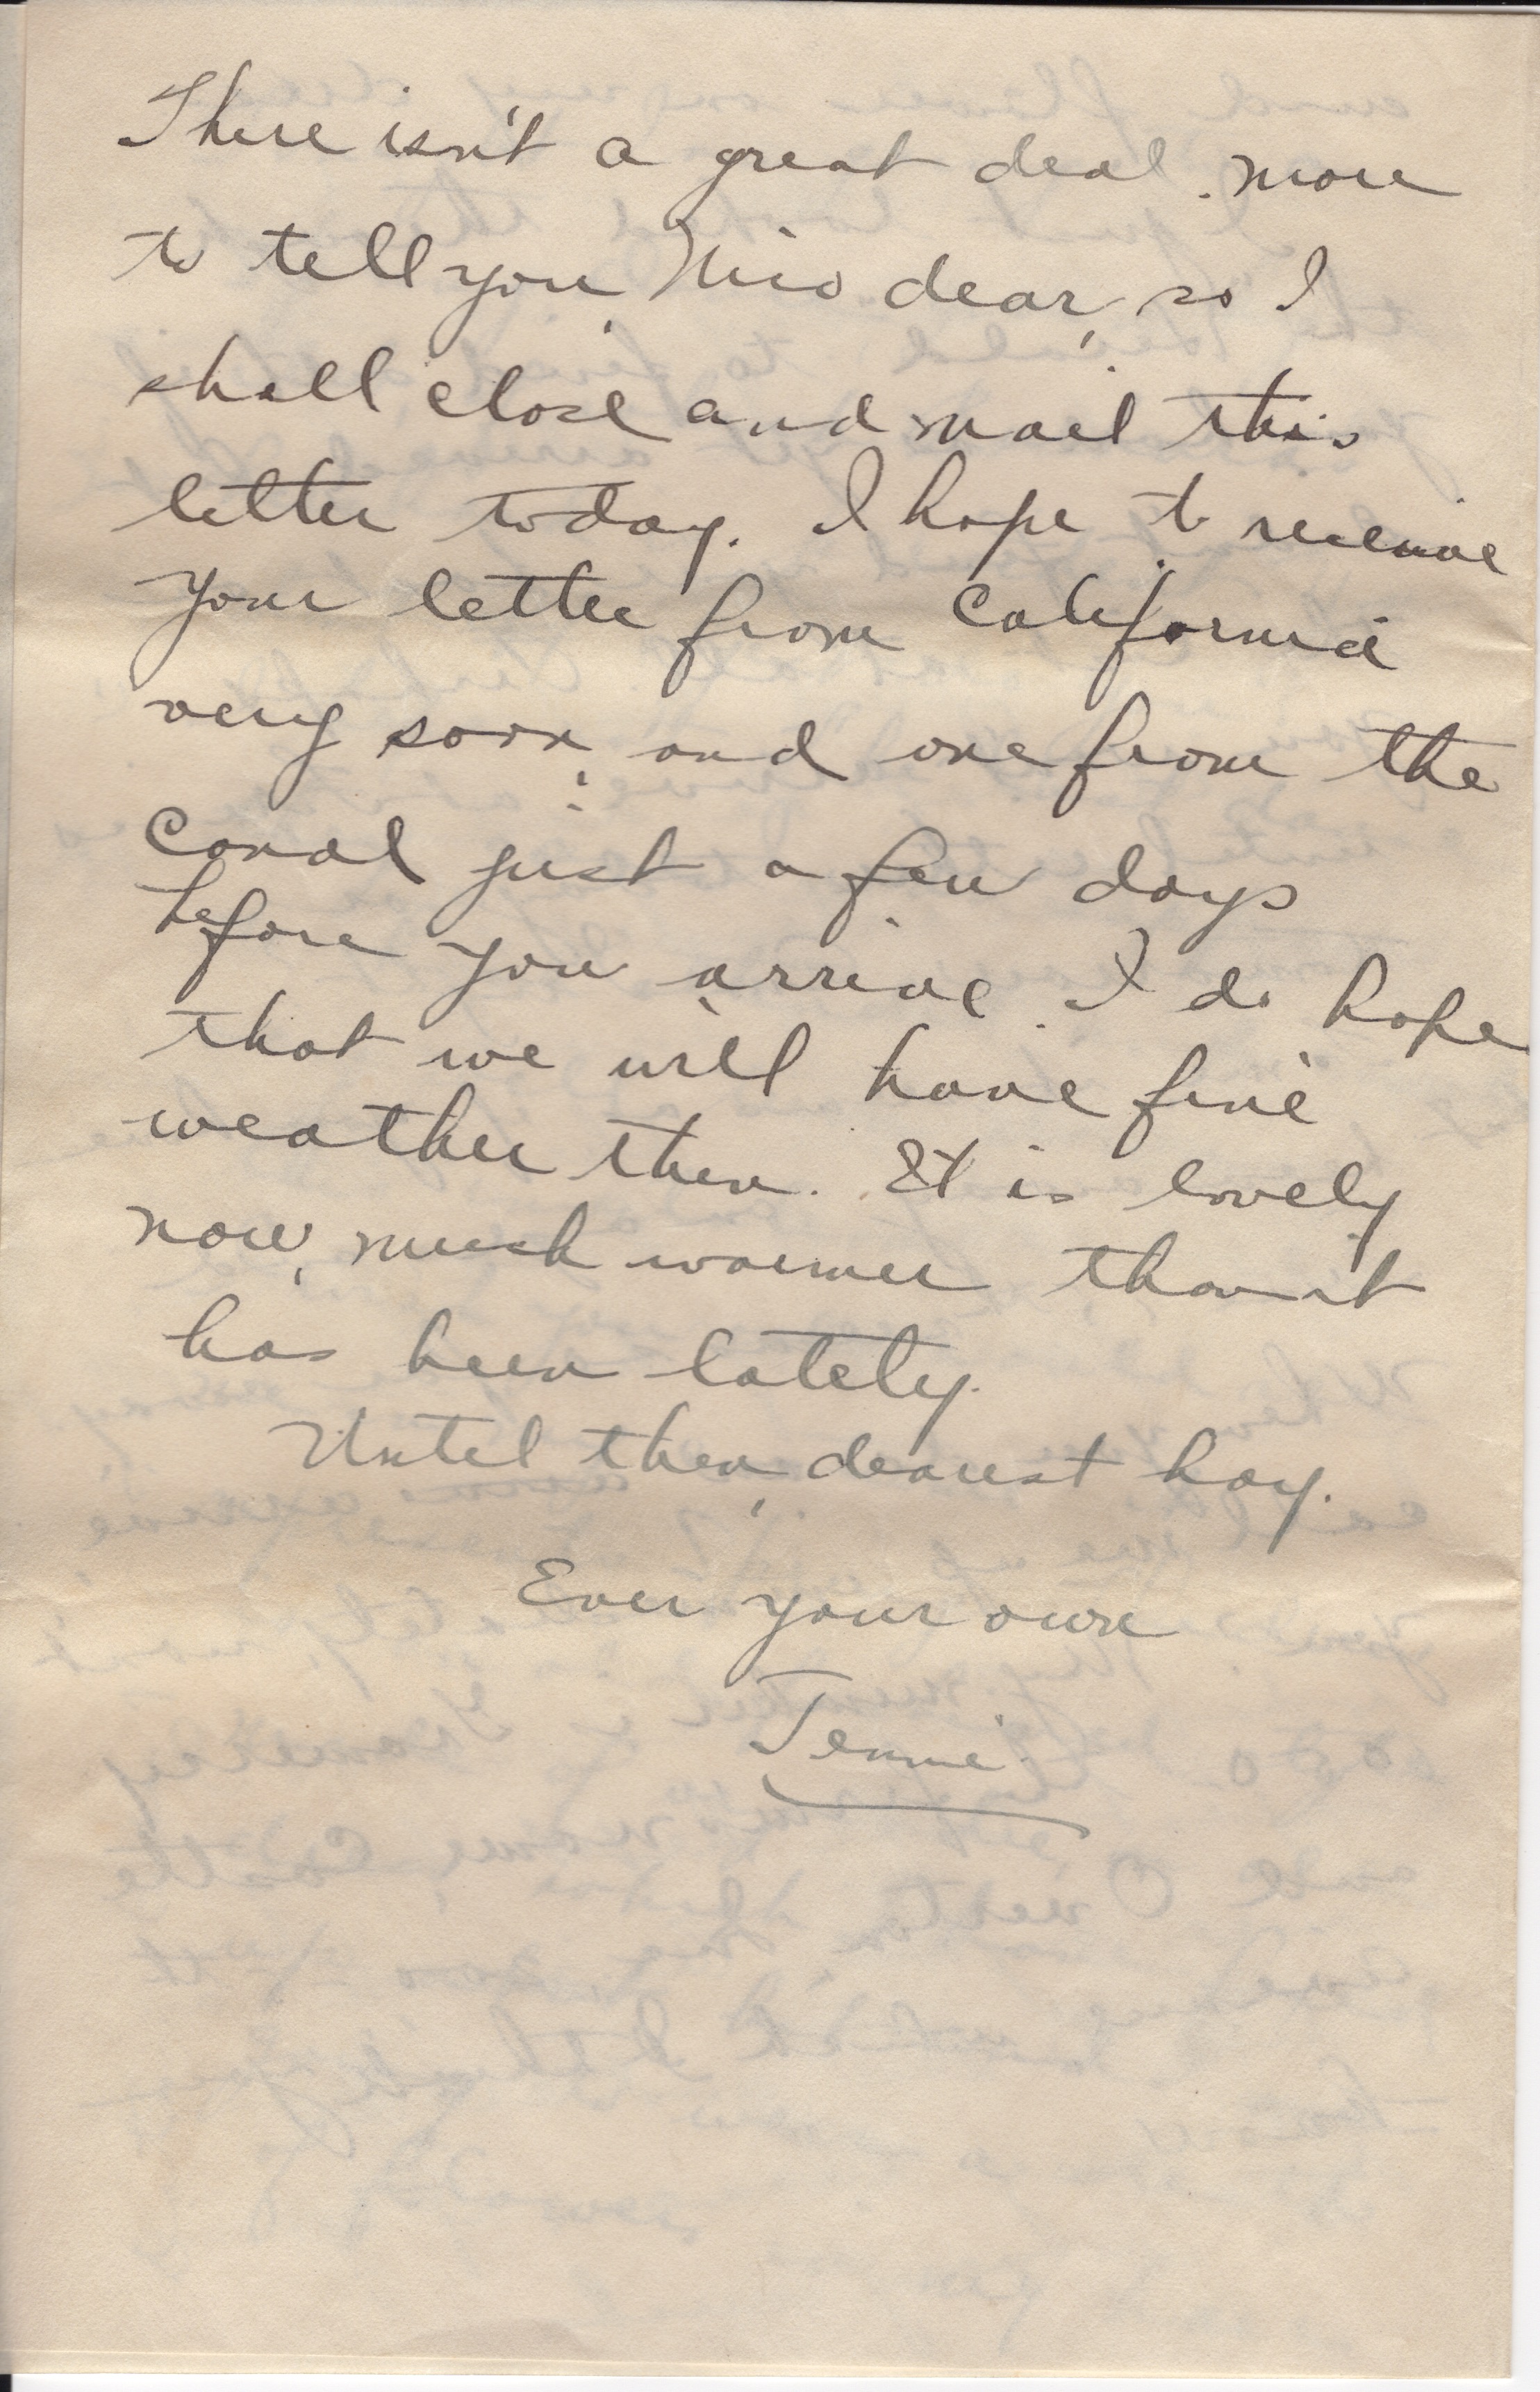 There isn't a great deal more
to tell you, Mio dear, so I
shall close and mail this
letter today. I hope to receive
your letter from California
very soon, and one from the
Canal just a few days
before you arrive. I do hope
that we will have fine
weather then. It is lovely
now, much warmer than it
has been lately.
Until then, dearest boy.
Ever your own
Jennie